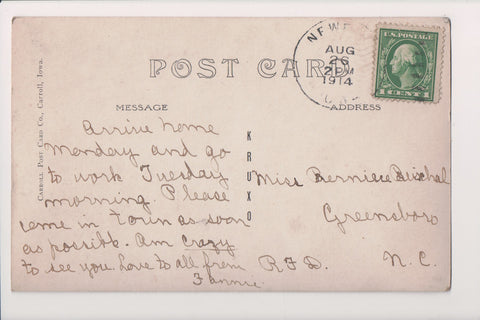 AUG
26
2 PM
1914
U.S. POSTAGE
1 CENT 1
POST CARD
Carroll Post Card Co., Carroll, Iowa.
MESSAGE
ADDRESS
KRUXO
Arrive home
Monday and go
to work Tuesday
morning. Please
come in town as soon
as possible. Am crazy
to see you. Love to all from
Fannie.
Miss Bernice
Greensboro
R.F.D. N.C.